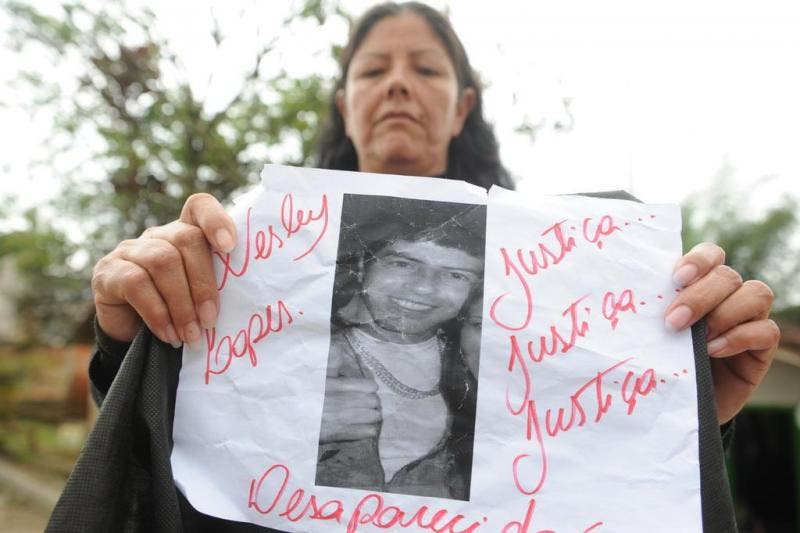 Wesley
Lopes.
Justiça...
Justiça...
Justiça...